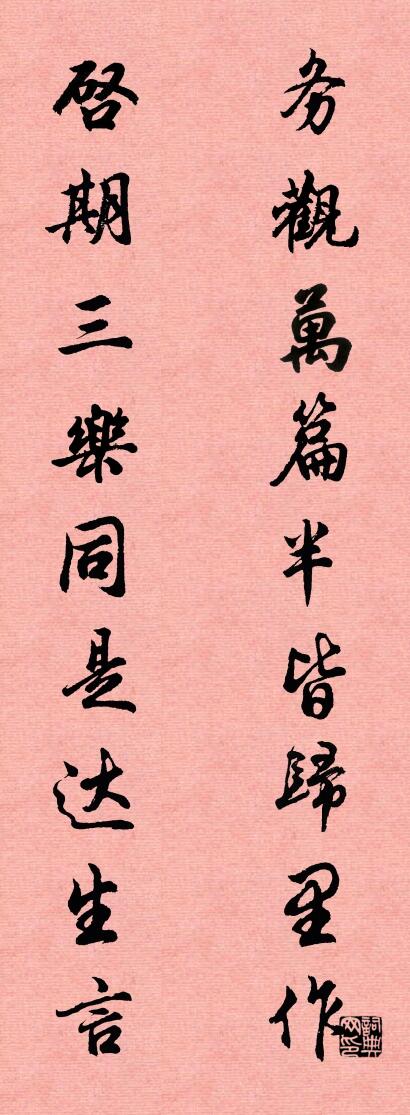 务觀萬篇半皆歸里作
啓期三樂同是达生言
詞典网印